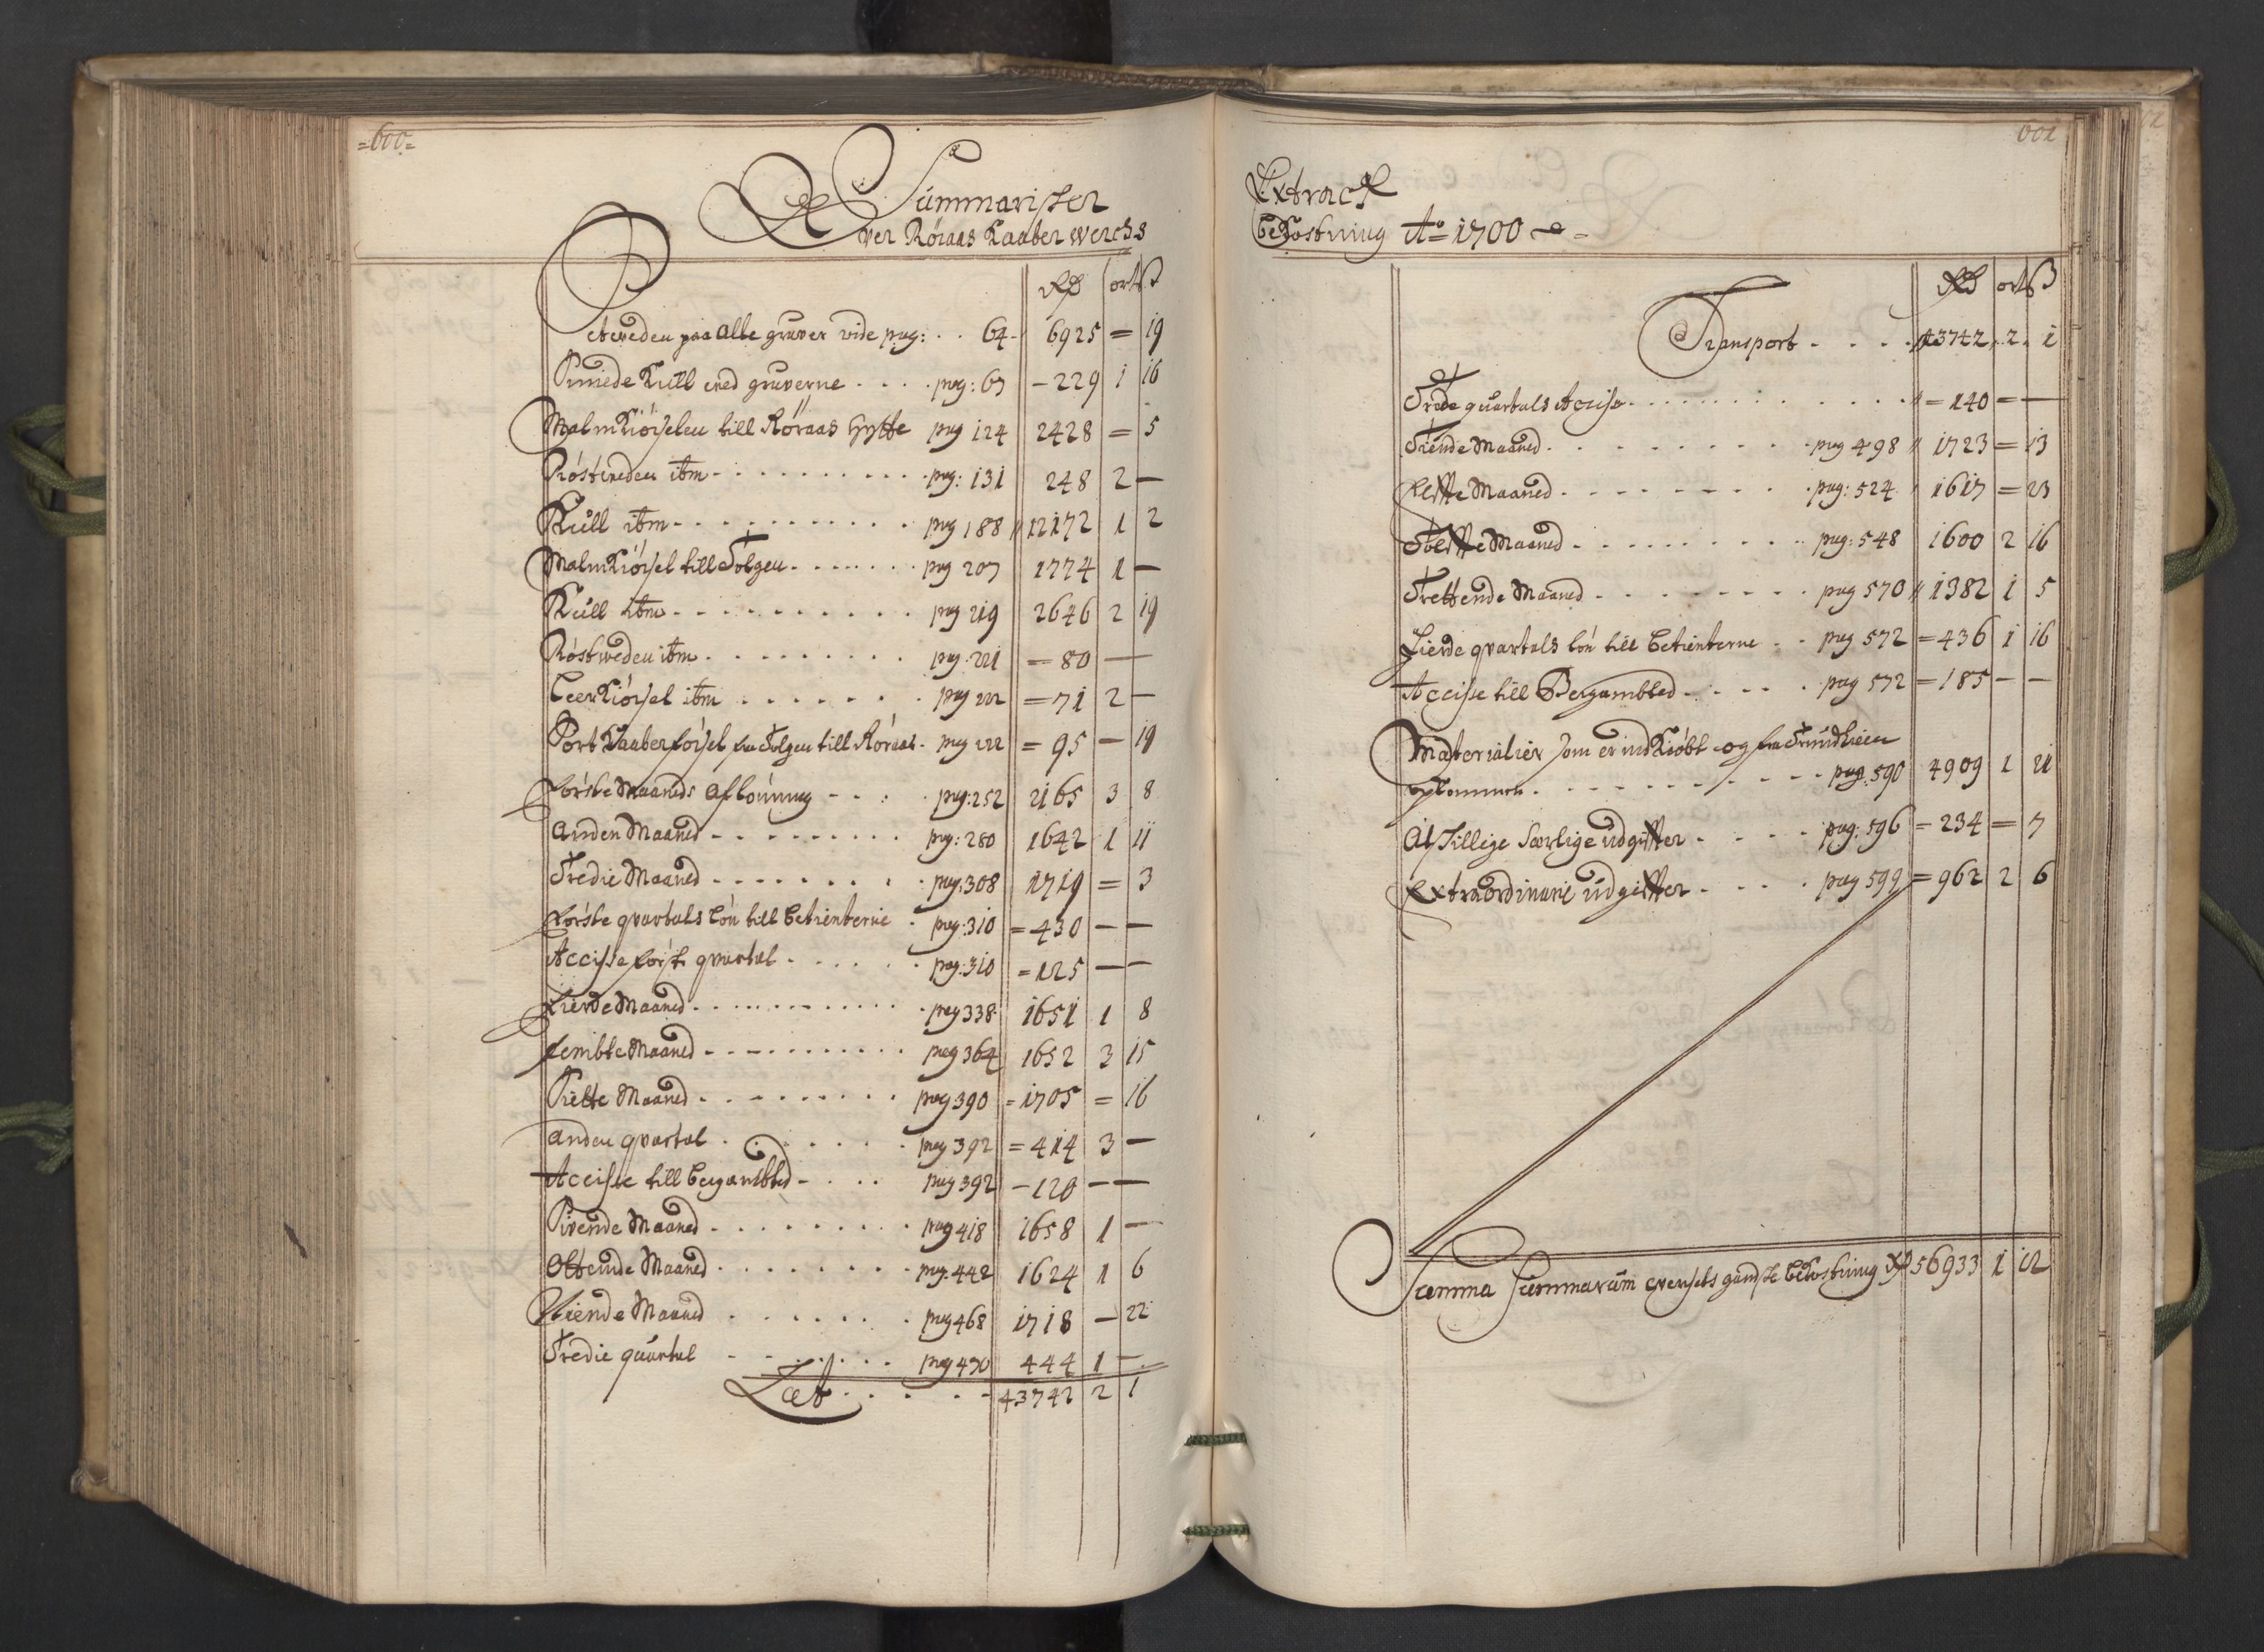 =600=
Summarister
over Röraas Kaaber werchs
Rdr ort ß
Setweden paa alle gruver vide pag: . . 64 6925 = 19
Smiede Kull wed gruverne . . . . pag: 67 - 229 1 16
Malm Kiörselen till Röraas Hytte pag 124 2428 = 5
Röstweden itm - . . . . . . . . . pag: 131 248 2 -
Kull itm - . . . . . . . . . pag 188 12172 1 2
Malm Kiörsel till Tolgen - . . . . . . pag 207 1774 1 -
Kull itm - . . . . . . . . . pag 219 2646 2 19
Röstweden itm . . . . . . . . . pag. 221 = 80 -
Leerkiörsel itm . . . . . . . pag 222 = 71 2 -
Sort Kaaber försel fra Tolgen till Röraas . pag 222 = 95 - 19
Förste Maaneds aflönning - - . . pag: 252 2165 3 8
Anden Maaned - . . . . . . . . pag: 280 1642 1 11
Tredie Maaned - . . . . . . . . pag: 308 1719 = 3
Förste qvartals Lön till betienterne . pag: 310 = 430 - -
Accisse förste qvartal . . . . . pag: 310 = 125 - -
Fierde Maaned . . . . . . . . . . pag 338 1651 1 8
fembte Maaned - . . . . . . . . pag 364 1652 3 15
Siette Maaned . . . . . . . . . pag 390 = 1705 = 16
Anden qvartal . . . . . . . . pag 392 = 414 3 -
Accisse till bergambted - . . . . pag 392 - 120 - -
Sivende Maaned . . . . . . . . pag 418 1658 1 -
Ottende Maaned . . . . . . . . pag. 442 1624 1 6
Niende Maaned . . . . . . . pag 468 1718 - 22
Tredie quartal - . . . . . . . pag 470 444 1 -
Lat . . . . . - 43742 2 1
601
Extract
bekostning Ao 1700
Rdr ort ß
Transport . . . . 43742 . 2 . 1
Trede quartals Accise . . . . . . . . . . . = 140 = -
Tiende Maaned . . . . . . . . . pag 498 1723 = 13
Elffte Maaned . . . . . . . . . pag: 524 1617 = 23
Tolffte Maaned . . . . . . . . . pag: 548 1600 2 16
Trettende Maaned . . . . . . . . pag 570 1382 1 5
Fierde qvartals lön till betienterne . . pag 572 = 436 1 16
Accisse till Bergambted . . . . . pag 572 = 185 - -
Materialier som er indkiöbt og fra Trundhiem
opkommen . . . . . . . . . pag: 590 4909 1 21
Adskillige Særlige udgiffter . . . . pag: 596 = 234 = 7
Extraordinarie udgiffter . . . . pag 599 = 962 2 6
Summa Summarum werchets gandske bekostning Rdr 56933 1 12